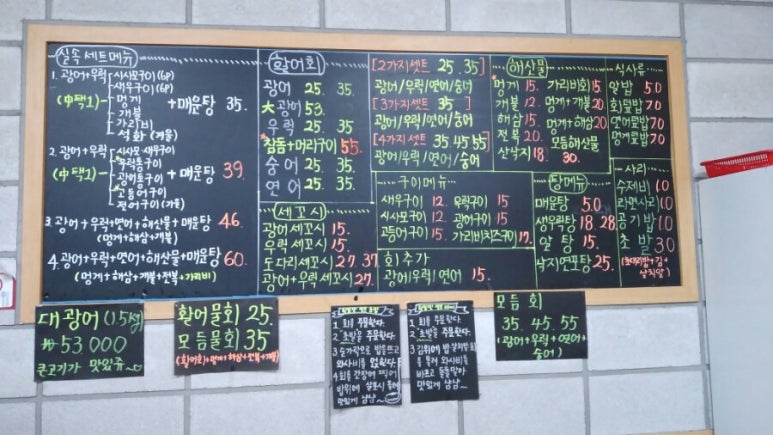 실속 세트메뉴
1. 광어+우럭
(中택1)
시사모구이(6P)
새우구이(6P)
멍게
개불
가리비
석화(겨울)
+매운탕 35.
2. 광어+우럭
(中택1)
시사모·새우구이
우럭통구이
광어통구이
고등어구이
전어구이(가을)
+매운탕 39.
3. 광어+우럭+연어+해산물+매운탕 46.
(멍게+해삼+개불)
4. 광어+우럭+연어+해산물+매운탕 60.
(멍게+해삼+개불+전복+가리비)
활어회
광어 25. 35.
大광어 53.
우럭 25. 35.
참돔+머리구이 55.
숭어 25. 35.
연어 25. 35.
세꼬시
광어세꼬시 15.
우럭세꼬시 15.
도다리세꼬시 27. 37
광어+우럭세꼬시 27.
[2가지셋트 25.35]
광어/우럭/연어/숭어
[3가지셋트 35]
광어/우럭/연어/숭어
[4가지셋트 35.45.55]
광어/우럭/연어/숭어
구이메뉴
새우구이 12. 우럭구이 15.
시사모구이 12. 광어구이 15.
고등어구이 12. 가리비치즈구이 17.
회추가
광어/우럭/연어 15.
해산물
멍게 15. 가리비회 15.
개불 12. 멍게+개불 20.
해삼 15. 멍게+해삼 20
전복 20. 모듬해산물
산낙지 18. 30.
탕메뉴
매운탕 5.0
생우럭탕 18.28
알탕 15.
낙지연포탕 25.
식사류
알밥 5.0
회덮밥 7.0
연어덮밥 7.0
멍게덮밥 7.0
사리
수제비 1.0
라면사리 1.0
공기밥 1.0
초밥 3.0
(초대리밥+김+날치알)
대광어(1.5셀)
₩53.000
큰고기가 맛있쥬~
활어물회 25.
모듬물회 35
(활어회+멍게+해삼+전복+개불)
1. 회를 주문한다.
2. 초밥을 주문한다.
3 숟가락으로 밥을 뜨고
와사비를 얹는다.
4 회를 간장에 찍어
밥위에 살포시 올려
맛있게 냠냠~
1. 회를 주문한다.
2. 초밥을 주문한다.
3 김위에
와사비를
맛있게 냠냠~
모듬회
35. 45. 55
(광어+우럭+연어+
숭어)